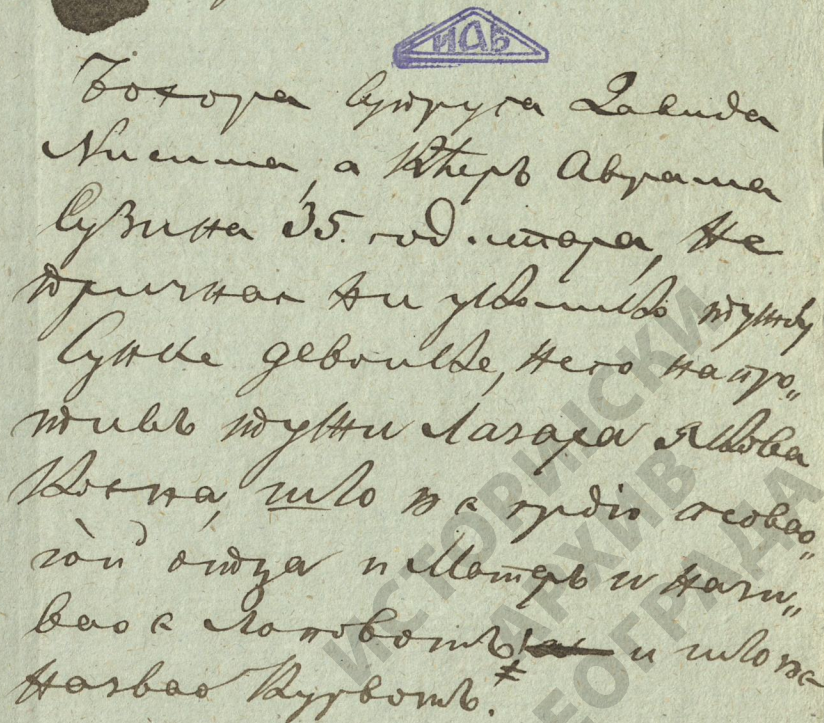 ИАБ
Бохора супруга Давида
Нисима, а кћерь Аврама
Сузина 35. год. стара, не
признає ни уколико тужбу
Сунхе девойке, него напро„
тивъ тужи Лазара Якова
Коена, што
отца и Матерь и нази„
вао є лоповомъ и што
назвао Курвомъ.
ИСТОРИЈСКИ
АРХИВ
БЕОГРАДА